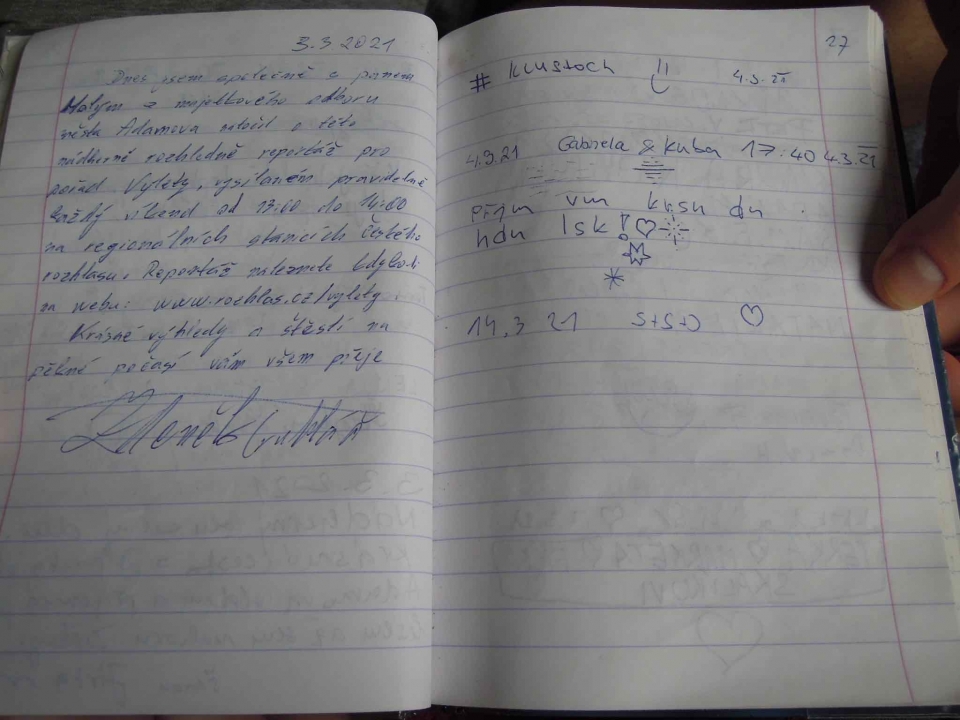 3.3 2021
Dnes jsem společně s panem
Malým z majetkového odboru
města Adamova natočil o této
nádherné rozhledně reportáž pro
pořad Výlety, vysílaném pravidelně
každý víkend od 13:00 do 14:00
na regionálních stanicích Českého
rozhlasu. Reportáž naleznete kdykoli
na webu: www.rozhlas.cz/vylety.
Krásné výhledy a štěstí na
pěkné počasí vám všem přeje
Zdeněk
27
# klustoch 4.3.21
4.3.21 Gabriela & Kuba 17:40 4.3.21
přjm vm krsn dn
hdn lsk! ♡
*
14.3 21 S+S+D ♡